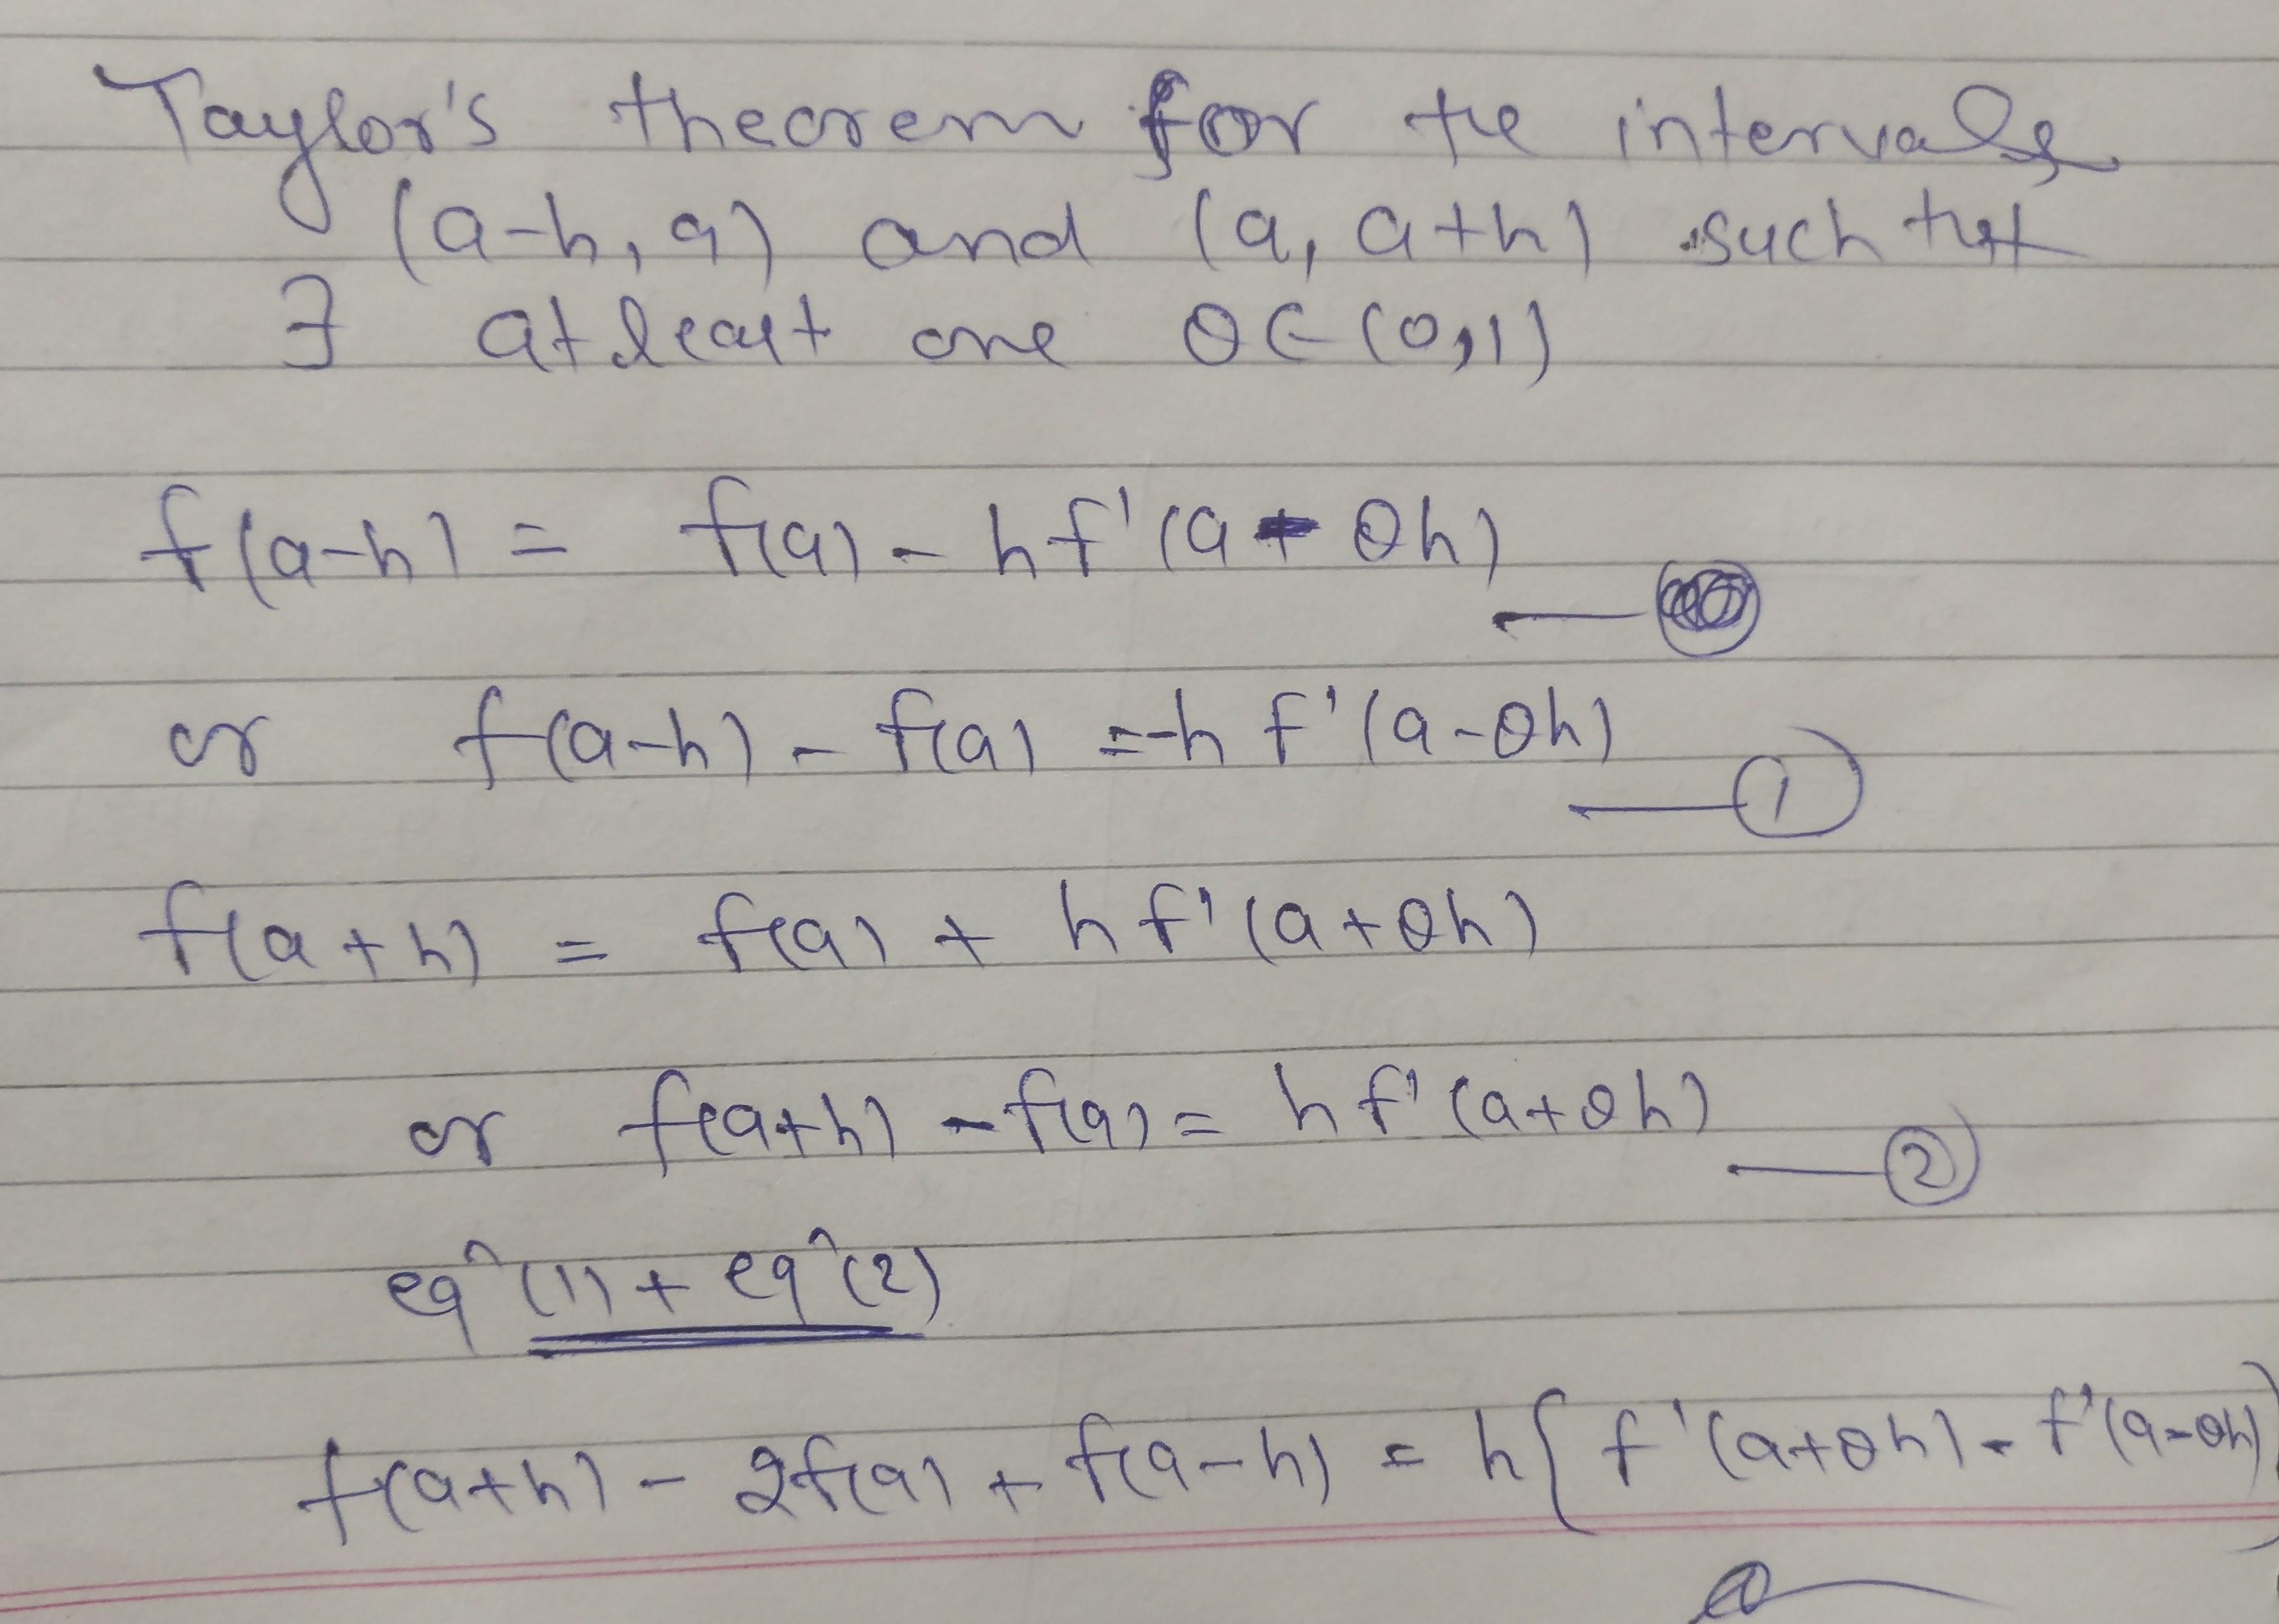 Taylor's theorem for the intervals
(a-h, a) and (a, a+h) such that
∃ atleast one θ∈(0,1)
f(a-h) = f(a) - hf'(a - θh)
or f(a-h) - f(a) = -h f'(a-θh)
—①
f(a+h) = f(a) + hf'(a+θh)
or f(a+h) - f(a) = hf'(a+θh)
—②
eqⁿ(1) + eqⁿ(2)
f(a+h) - 2f(a) + f(a-h) = h{f'(a+θh) - f'(a-θh)}